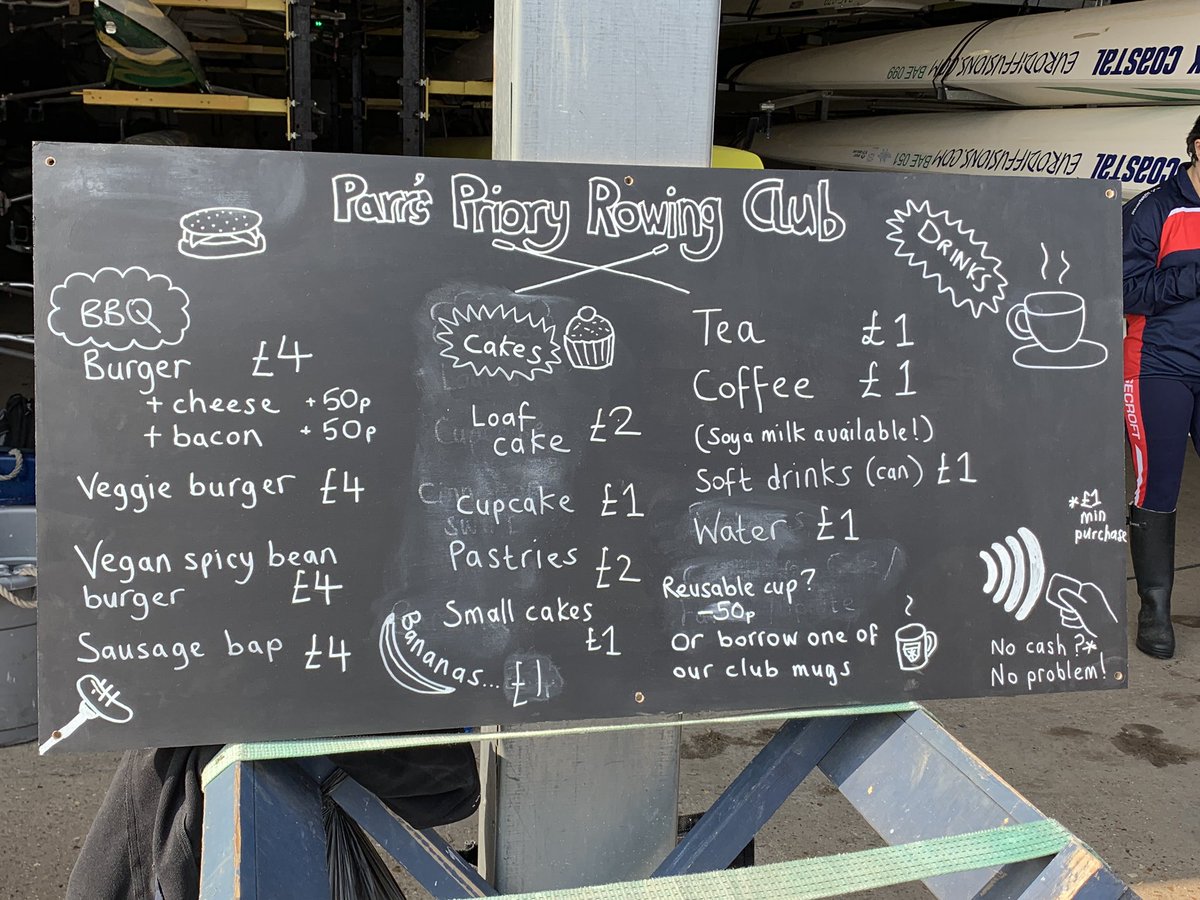 Parr's Priory Rowing Club
BBQ
Burger £4
+ cheese +50p
+ bacon +50p
Veggie burger £4
Vegan spicy bean
burger £4
Sausage bap £4
Cakes
Loaf
cake £2
Cupcake £1
Pastries £2
Small cakes
£1
Bananas... £1
DRINKS
Tea £1
Coffee £1
(Soya milk available!)
Soft drinks (can) £1
Water £1
Reusable cup?
-50p
Or borrow one of
our club mugs
*£1
min
purchase
No cash?*
No problem!
COASTAL
EURODIFFUSIONS.COM BAE 099
COASTAL
EURODIFFUSIONS.COM BAE 051
ECROFT